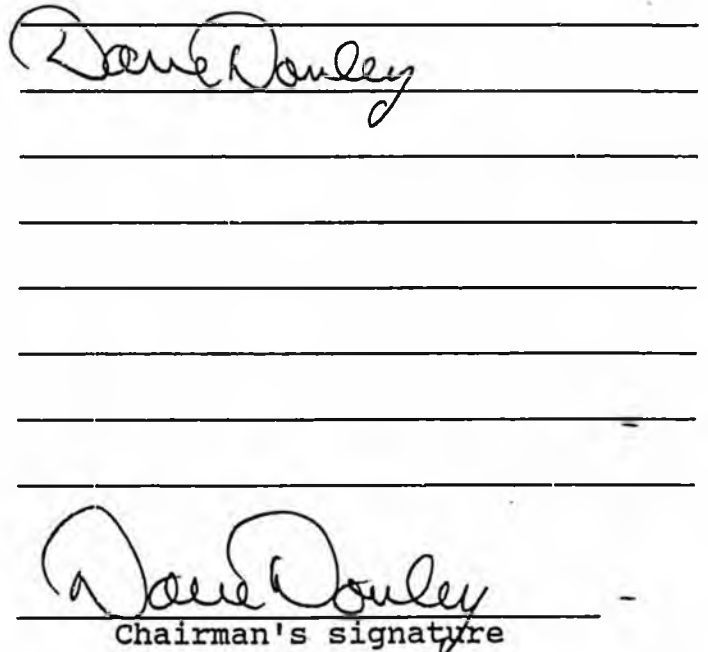 Dave Donley
Dave Donley
Chairman's signature